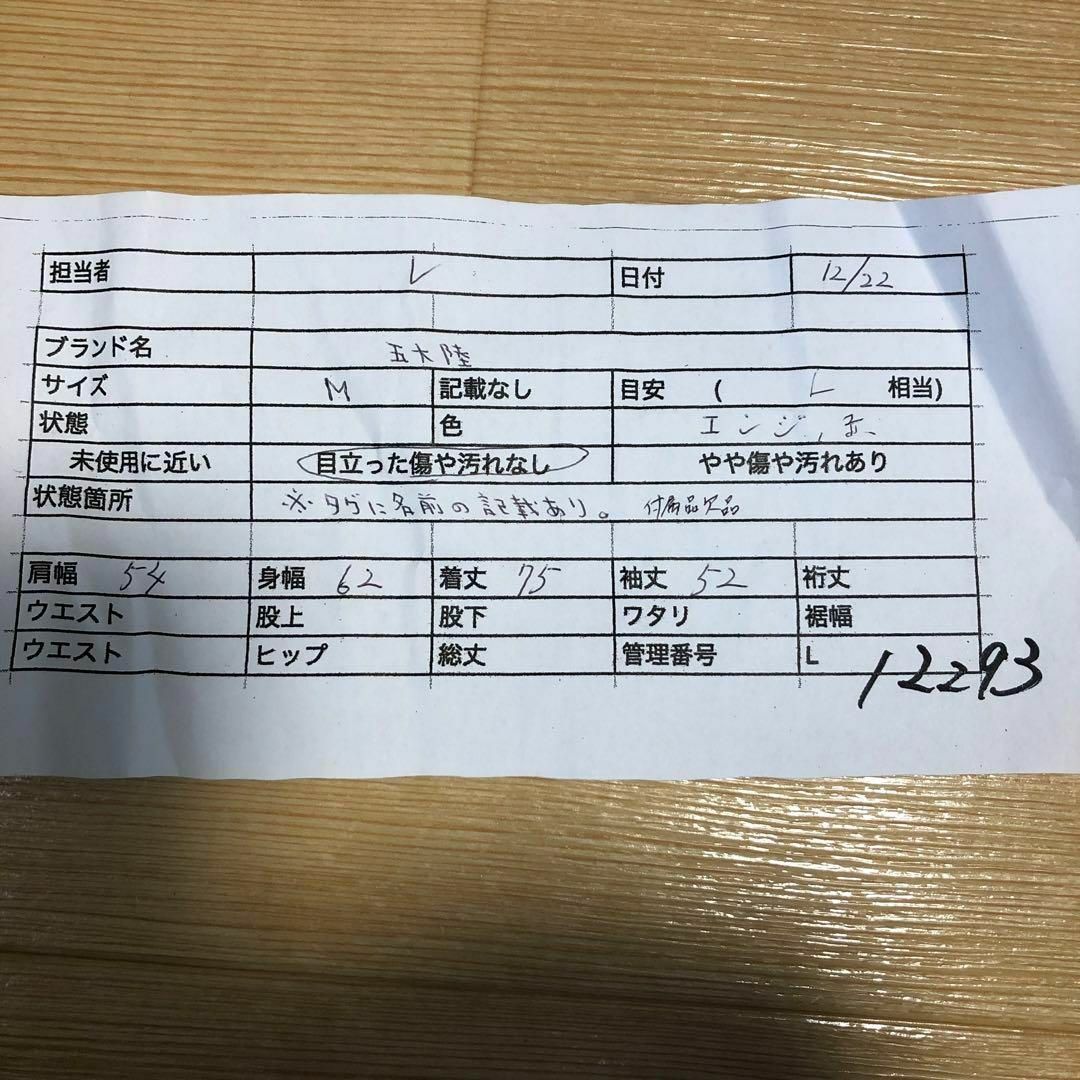 担当者 L 日付 12/22
ブランド名 五大陸
サイズ M 記載なし 目安 ( L 相当)
状態 色 エンジ、赤
未使用に近い 目立った傷や汚れなし やや傷や汚れあり
状態箇所 ※タグに名前の記載あり。 付属品欠品
肩幅 54 身幅 62 着丈 75 袖丈 52 裄丈
ウエスト 股上 股下 ワタリ 裾幅
ウエスト ヒップ 総丈 管理番号 L 12293